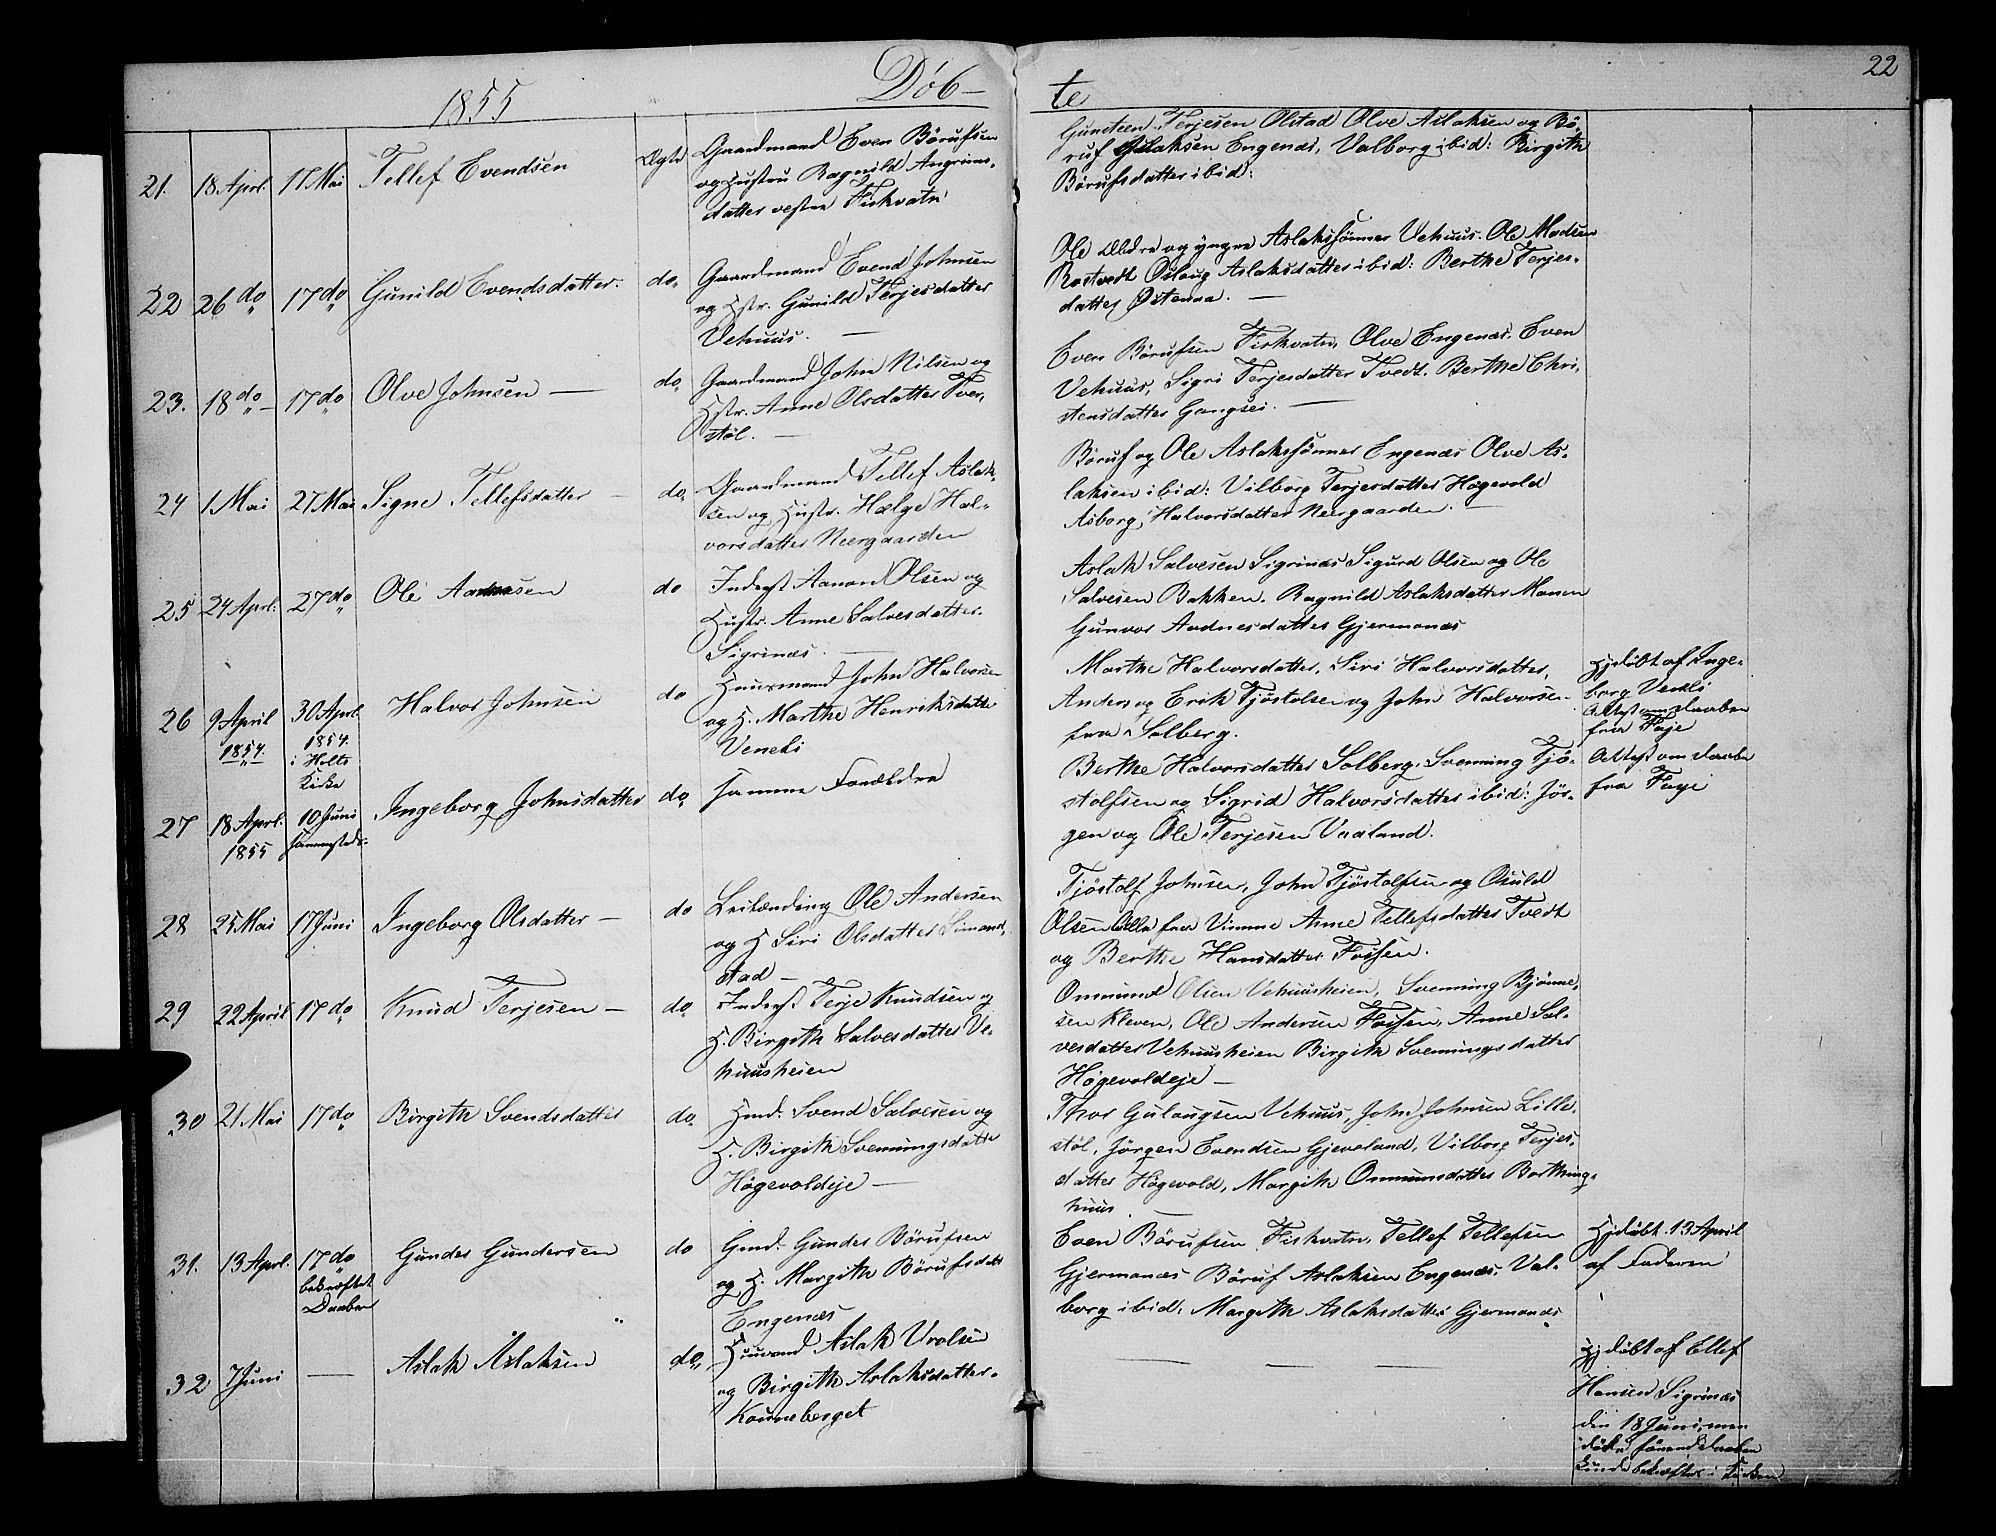 22
1855 Döb-
te
21. 18 Aprl. 17 Mai Tellef Evendsen Ægte Gaardmand Even Börufsen
og Hustru Ragnild Angrims-
datter vestre Fiskvatn
Gunsteen Terjesen Olstad Olve Aslaksen og Bö-
ruf Aslaksen Engenæs, Valborg ibid: Birgith
Börufsdatter ibid:
22 26 do 17 do Gunild Evendsdatter. do. Gaardmand Evend Johnsen
og Hstr. Gunild Terjesdatter
Vehuus. —
Ole Ældre og yngre Aslaksönner Vehuus. Ole Madsen
Rostvedt Oslaug Aslaksdatter ibid: Berthe Terjes-
datter Östenaa. —
23. 18 do — 17 do Olve Johnsen — do, Gaardmand John Nilsen og
Hstr. Anne Olsdatter Tver-
stöl. —
Even Börufsen Fiskvatn, Olve Engenæs. Even
Vehuus, Sigri Terjesdatter Tvedt. Berthe Chri-
stensdatter Gangsei. —
24 1 Mai 27 Mai Signe Tellefsdatter — do, Gaardmand Tellef Aslak-
sen og Hustr. Hælge Hal-
vorsdatter Neergaarden
Böruf og Ole Aslaksönner Engenæs Olve As-
laksen ibid: Vilborg Terjesdatter Högevold
Asborg Halvorsdatter Neergaarden. —
25 24 Aprl. 27 do Ole Aanonsen do Inderst Aanon Olsen og
Hustr. Anne Salvesdatter.
Sigrinæs. —
Aslak Salvesen Sigrinæs Sigurd Olsen og Ole
Salvesen Bakken. Ragnild Aslaksdatter Monen
Gunvor Audnesdatter Gjermonæs
26 9 April
1854.
30 Aprl.
1854.
i Holts
Kirke
Halvor Johnsen do Huusmand John Halvorsen
og H. Marthe Henriksdatter
Veneli
Marthe Halvorsdatter, Siri Halvorsdatter,
Anders og Erik Tjöstolsen og John Halvorsen
fra Solberg.
Hjdöbt af Inge-
borg Veneli
Attest om Daaben
fra Faje
27 18 Aprl.
1855
10 Juni
sammesteds.
Ingeborg Johnsdatter do. samme Forældre
Berthe Halvorsdatter Solberg, Svenning Tjö-
stolfsen og Sigrid Halvorsdatter ibid: Jör-
gen og Ole Terjesen Vaaland.
Attest om Daaben
fra Faje
28 25 Mai 17 Juni Ingeborg Olsdatter — do Leilænding Ole Andersen
og H Siri Olsdatter Simond-
stad —
Tjöstolf Johnsen, John Tjöstolfsen og Osuld
Olsen Alle fra Vimme Anne Tellefsdatter Tvedt
og Berthe Hansdatter Fossen.
29 22 April 17 do Knud Terjesen — do. Inderst Terje Knudsen og
H. Birgith Salvesdatter Ve-
huusheien
Ommund Olsen Vehuusheien, Svenning Bjönne-
sen Kleven, Ole Andersen Fossen, Anne Sal-
vesdatter Vehuusheien Birgith Svenningsdatter
Högevoldeje —
30 21 Mai 17 do Birgith Svendsdatter do. Hmd. Svend Salvesen og
H. Birgith Svenningsdatter
Högevoldeje —
Thor Gulaugsen Vehuus, John Johnsen Lille-
stöl, Jörgen Evendsen Gjeveland, Vilborg Terjes-
datter Högevold, Margith Ommundsdatter Botthing-
huus
31. 13 Aprl. 17 do
bekræftet
Daaben
Gunder Gundersen do Gmd. Gunder Börufsen
og H. Margith Börufsdatter
Engenæs
Even Börufsen Fiskvatn, Tellef Tellefsen
Gjermonæs Böruf Aslaksen Engenæs. Val-
borg ibid: Margith Aslaksdatter Gjermonæs
Hjdöbt 13 April
af Faderen
32 7 Juni — Aslak Aslaksen do, Huusmand Aslak Vrolsen
og Birgith Aslaksdatter.
Konneberget
— — —
Hjdöbt af Ellef
Hansen Sigrinæs
den 18 Juni, men
döde förend Daaben
kunde bekræftes i Kirken